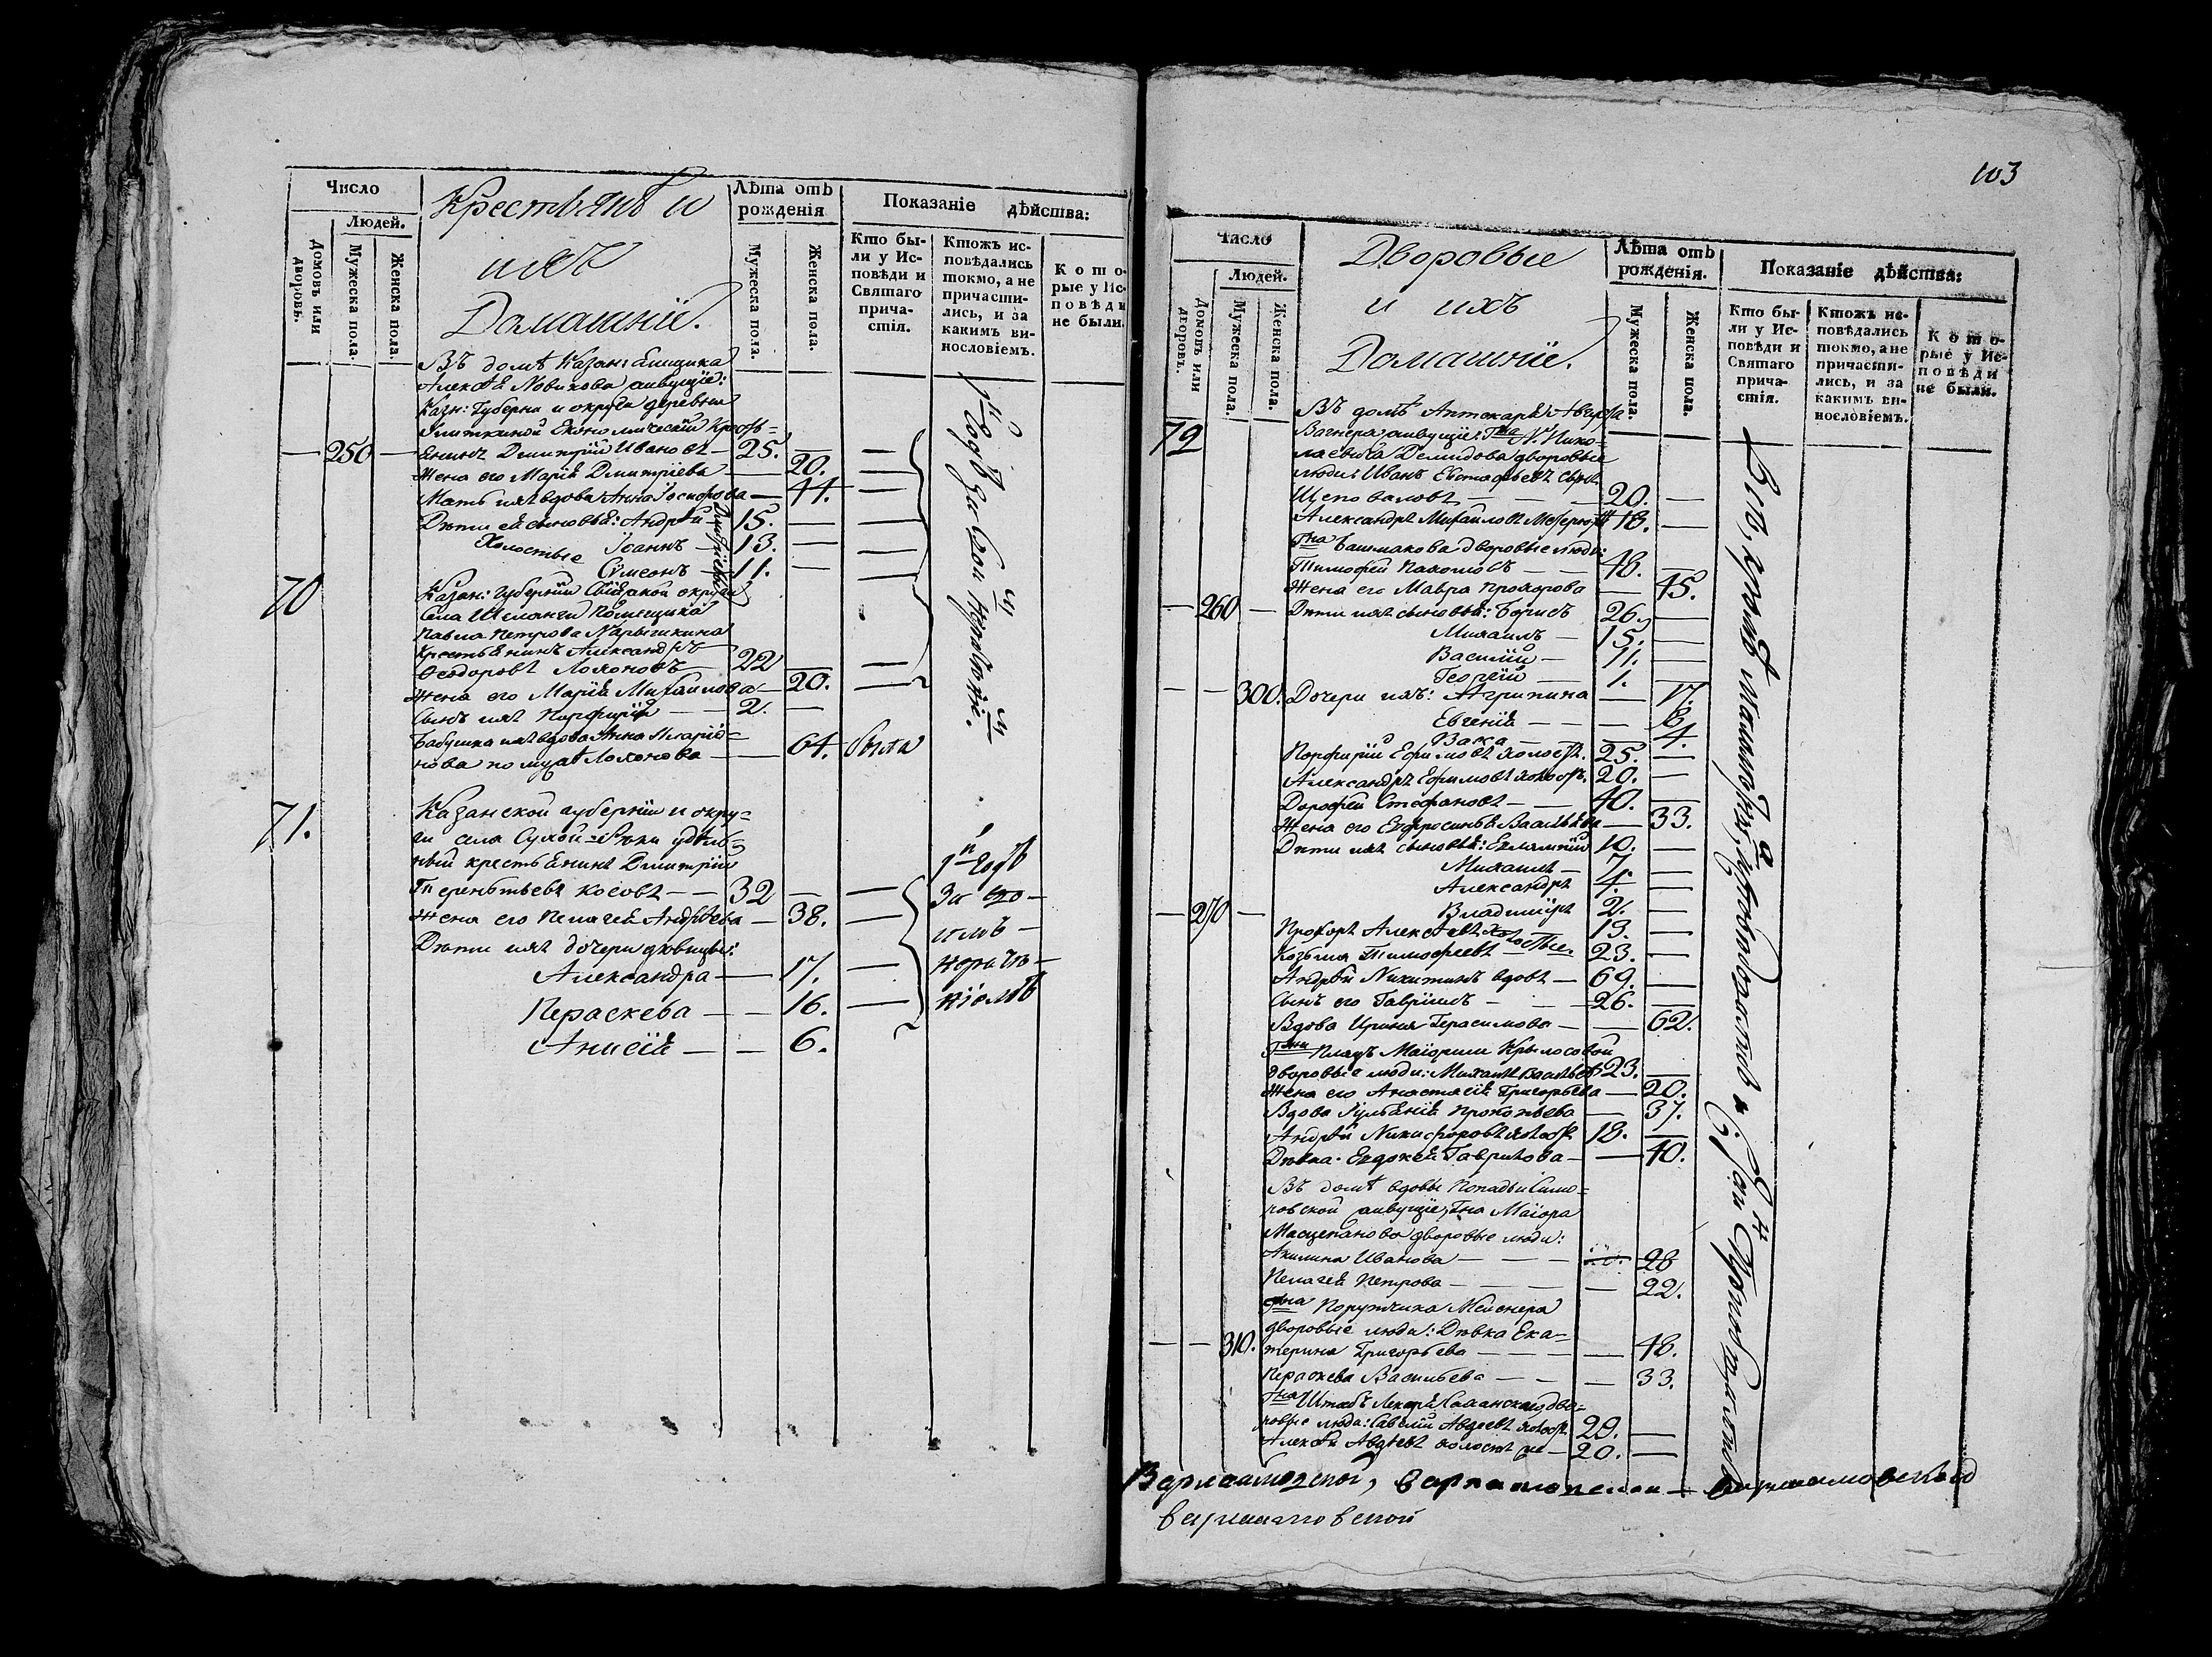 Число
Людей.
Домовъ или дворовъ.
Мужеска пола.
Женска пола.
Крестьянъ и
ихъ
Домашнїе.
Лѣта отъ рожденїя
Мужеска пола.
Женска пола.
Показанїе дѣйства:
Кто были у Исповѣди и Святаго причастїя.
Ктожъ исповѣдались токмо, а не причастились, и за какимъ винословїемъ.
Которые у Исповѣди не были.
Въ домѣ Казан: Ямщика
Алексѣя Новикова живущїе:
Казн: Губернїи и округи деревни
Экономическїй кресть=
— 250 — янинъ Димитрїй Ивановъ — 25.
Жена его Марїя Димитрїева — 20.
Мать ихъ вдова Анна — 44.
Дѣти ея сыновья: Андрей — 15. —
Холостые Іоаннъ — 13. —
Сѵмеонъ — 11. —
70
Казан: Губернїи Свїяжской округи
Села Шеланги Помещика
Павла Петрова Нарышкина
Крестьянинъ Александръ
Ѳеодоровъ 22
Жена его Марїя Михайлова — 20.
Сынъ ихъ Порфирїй — — 2. —
Бабушка ихъ вдова Анна Иларїо=
нова по мужѣ — 64. была
71.
Казанской губернїи и окру=
ги села Сухой=Рѣки удѣль=
ный крестьянинъ Димитрїй
Терентьевъ Косовъ — — 32 —
Жена его Пелагея Андрѣева — 38. —
Дѣти ихъ дочери девицы:
Александра — 17. —
Параскева — — 16. —
Анисїя — — 6.
1й годъ
За
103
Число
Людей.
Домовъ или дворовъ.
Мужеска пола.
Женска пола.
Дворовые
и ихъ
Домашнїе.
Лѣта отъ рожденїя.
Мужеска пола.
Женска пола.
Показанїе дѣйства:
Кто были у Исповѣди и Святаго причастїя.
Ктожъ исповѣдались токмо, а не причастились, и за какимъ винословїемъ.
Которые у Исповѣди не были.
72
Въ домѣ Аптекаря
Вагнера живущїе: Гна Нико=
лаевича Демидова дворовые
люди: Иванъ Евстафьевъ
Щеповаловъ — — — 20. —
Александръ Михайловъ 18. —
Гна Башмакова дворовые люди:
Тимофей Пахомовъ — — 48.
Жена его Мавра Прохорова — 45.
— 260 — Дѣти ихъ сыновья: Борисъ 26. —
Михаилъ — 15. —
Василїй — 11. —
Георгїй — 1. —
— — 300. Дочери ихъ: Агрипина — 17.
Евгенїя — — — 8.
— 4.
Порфирїй Ефимовъ холост. 25. —
Александръ Ефимовъ холост. 20. —
Дорофей Стефановъ — — 40.
Жена его Евфросинья Васильева — 33.
Дѣти ихъ сыновья: 10. —
Михаилъ — 7. —
Александръ 4. —
— 270 — Владимїръ 2. —
Прохоръ Алексѣевъ 19. —
Козьма Тимофеевъ холостые. 23. —
Андрей Никитинъ вдовъ — 69. —
Сынъ его Гаврїилъ — — 26. —
Вдова Ирина Герасимова — — 62.
Гжи Плацъ Маїорши Крылосовой
дворовые люди: Михаилъ Васильевъ 23. —
Жена его Анастасїя Григорьева — 20.
Вдова Прокопьева — 37.
Андрей Никифоровъ холост. 18. —
Дѣвка Евдокея Гаврилова — — 40.
Въ домѣ вдовы Попадьи
живущїе, Гна Маїора
дворовые люди:
Акилина Иванова — — — 28
Пелагея Петрова — — — 22.
Гна Поручика Мейснера
дворовые люди: Дѣвка Ека=
— — 310. терина Григорьева — — — 48.
Параскева Васильева — — — 33.
Гна Штабъ Лекаря дво=
ровые люди: Савелїй Авдеевъ холост. 29. —
Алексѣй Авдѣевъ 20. —
Варлаамовской, варлаамовской — варлаамовской
варлаамовской